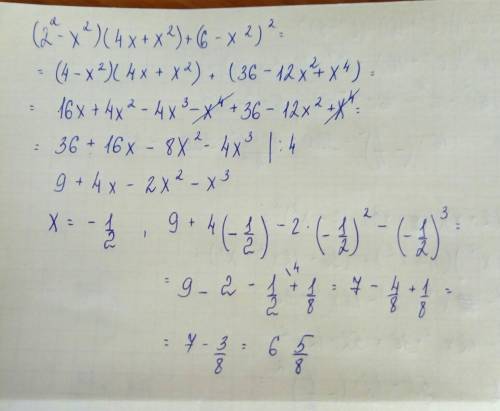 (2² - x²)(4x + x²) + (6 - x²)² =
= (4 - x²)(4x + x²) + (36 - 12x² + x⁴) =
= 16x + 4x² - 4x³ - x⁴ + 36 - 12x² + x⁴ =
= 36 + 16x - 8x² - 4x³ | : 4
9 + 4x - 2x² - x³
x = - 1/2 , 9 + 4(-1/2) - 2·(-1/2)² - (-1/2)³ =
= 9 - 2 - 1/2 \⁴ + 1/8 = 7 - 4/8 + 1/8 =
= 7 - 3/8 = 6 5/8